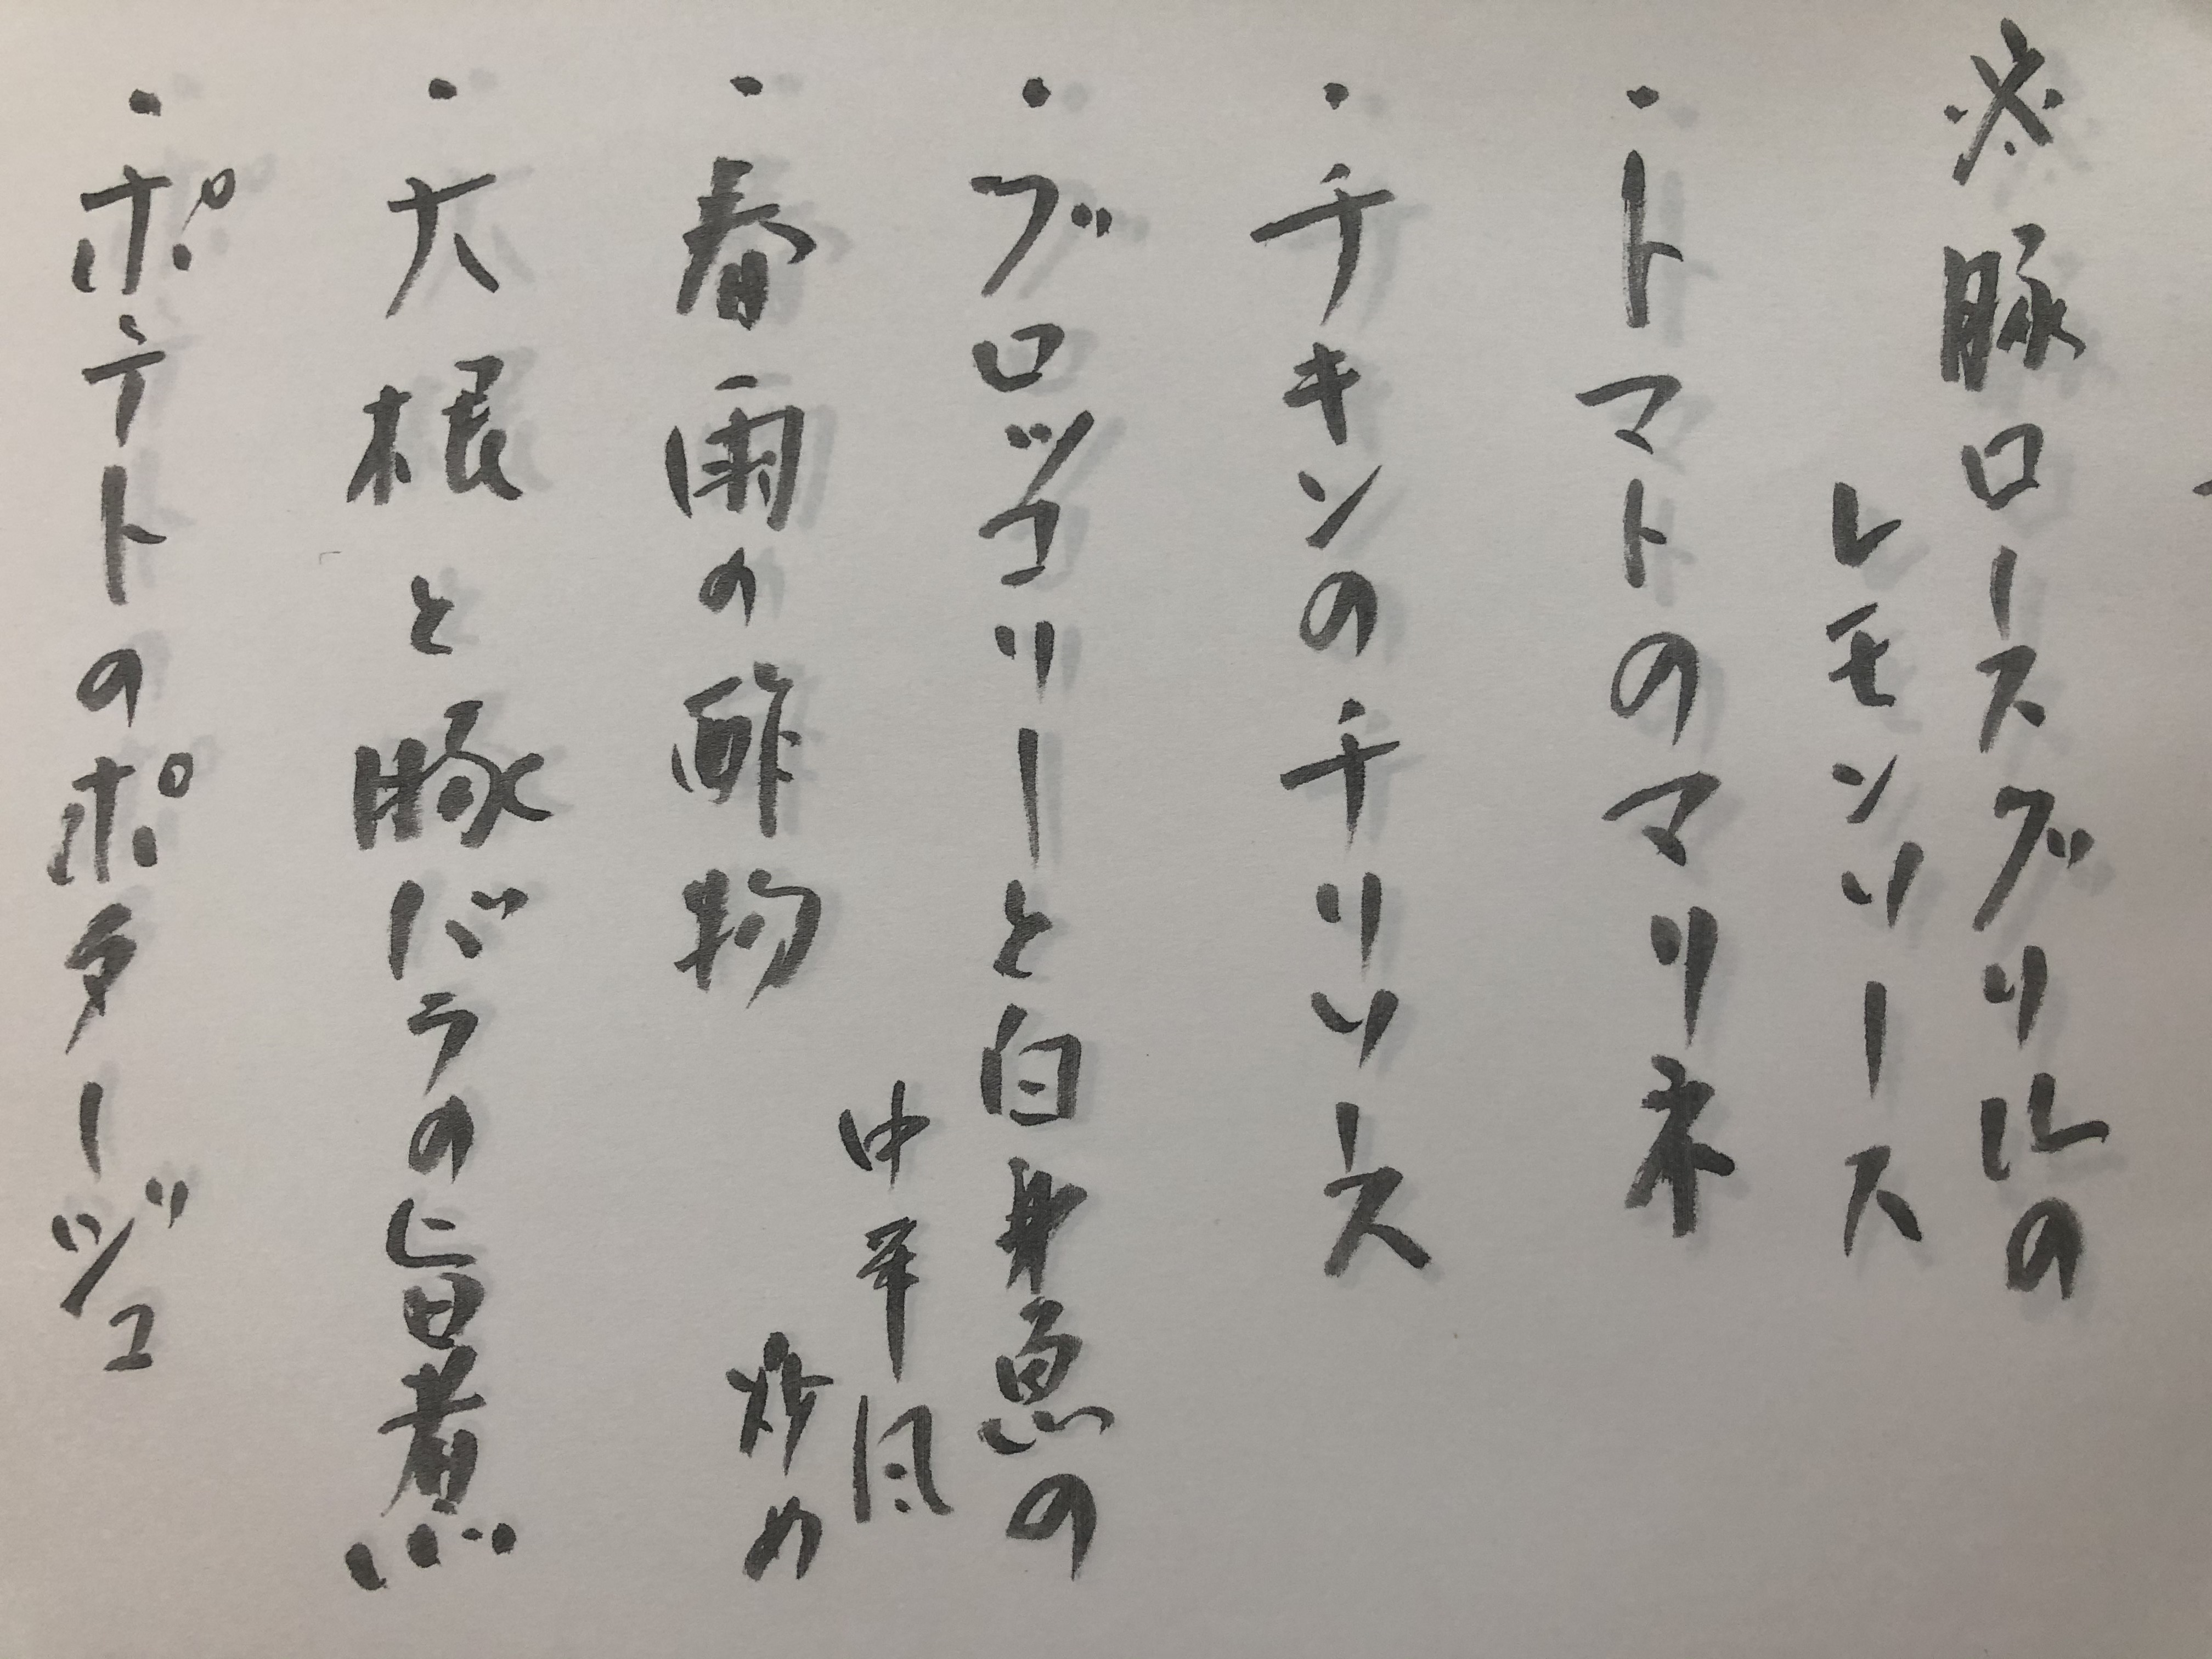 ※豚ロースグリルの
レモンソース
・トマトのマリネ
・チキンのチリソース
・ブロッコリーと白身魚の
中華風
炒め
・春雨の酢物
・大根と豚バラの旨煮
・ポテトのポタージュ